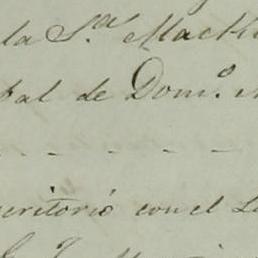 la S.ra Mack
pal de Dom.o
critorio con el L